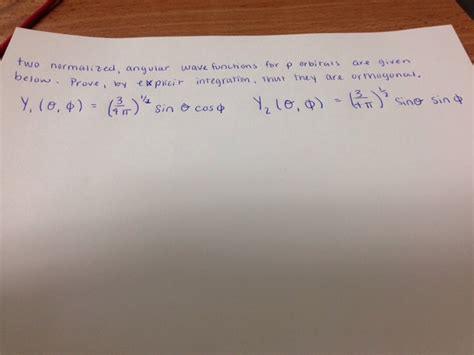 two normalized, angular wave functions for p orbitals are given
below. Prove, by explicit integration, that they are orthogonal.
Y₁(θ, φ) = (3/4π)^1/2 sin θ cosφ Y₂(θ, φ) = (3/4π)^1/2 sinθ sinφ